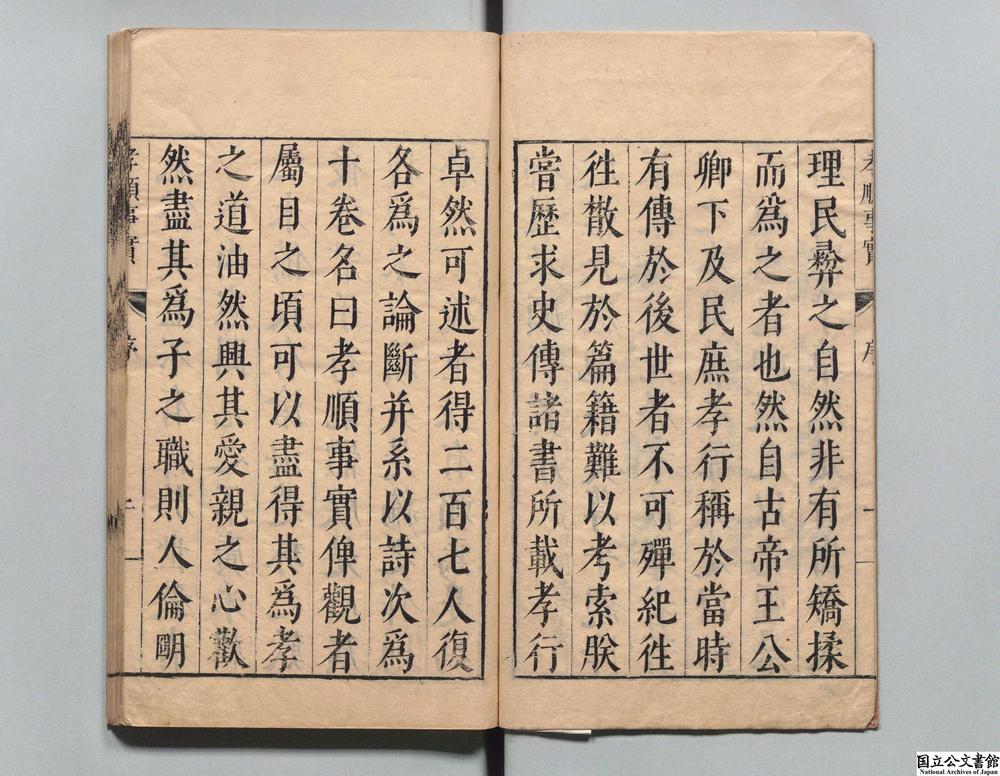 孝順事實
序
一
理民彛之自然非有所矯揉
而爲之者也然自古帝王公
卿下及民庶孝行稱於當時
有傳於後世者不可殫紀徃
徃散見於篇籍難以考索朕
甞歷求史傳諸書所載孝行
卓然可述者得二百七人復
各爲之論斷并系以詩次爲
十卷名曰孝順事實俾觀者
屬目之頃可以盡得其爲孝
之道油然興其愛親之心歡
然盡其爲子之職則人倫明
孝順事實
序
国立公文書館
National Archives of Japan